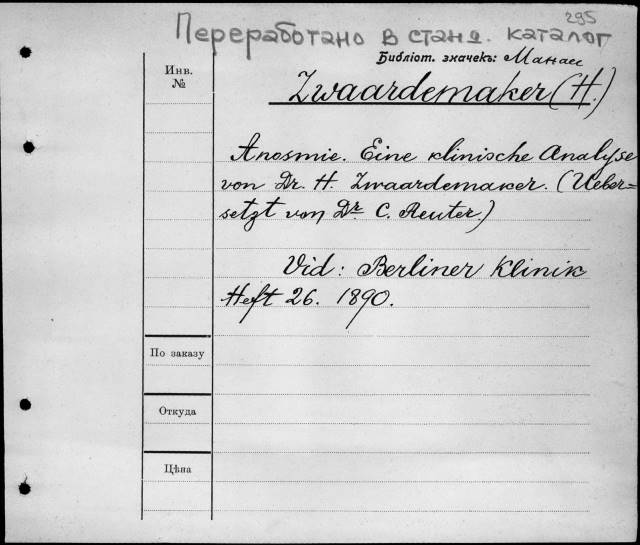 295
Переработано в станд. каталог
Библіот. значекъ: Манаш
Инв.
№
Zwaardemaker (H.)
Anosmie. Eine klinische Analyse
von Dr. H. Zwaardemaker. (Ueber=
setzt von Dr C. Reuter.)
Vid: Berliner Klinik
Heft 26. 1890.
По заказу
Откуда
Цѣна